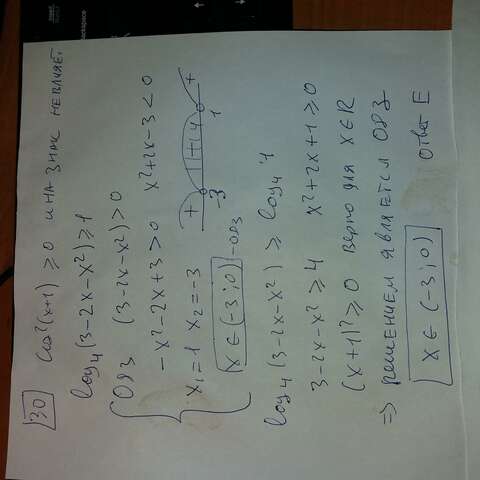 30 cos²(x+1) ≥ 0 и на знак не влияет
log₄(3-2x-x²) ≥ 1
ОДЗ (3-2x-x²) > 0
-x²-2x+3 > 0 x²+2x-3 < 0
x₁=1 x₂=-3
+ - +
-3 1
x ∈ (-3; 0) - ОДЗ
log₄(3-2x-x²) ≥ log₄4
3-2x-x² ≥ 4 x²+2x+1 ≥ 0
(x+1)² ≥ 0 верно для x∈R
⇒ решением является ОДЗ
x ∈ (-3; 0) ответ E